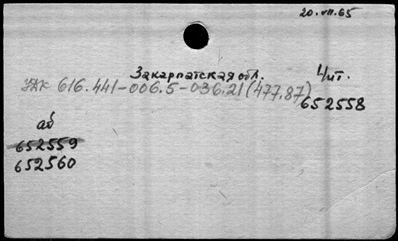 20.VII.65
Закарпатская обл. Чит.
УДК 616.441-006.5-036.21(477.87) 652558
аб
652559
652560